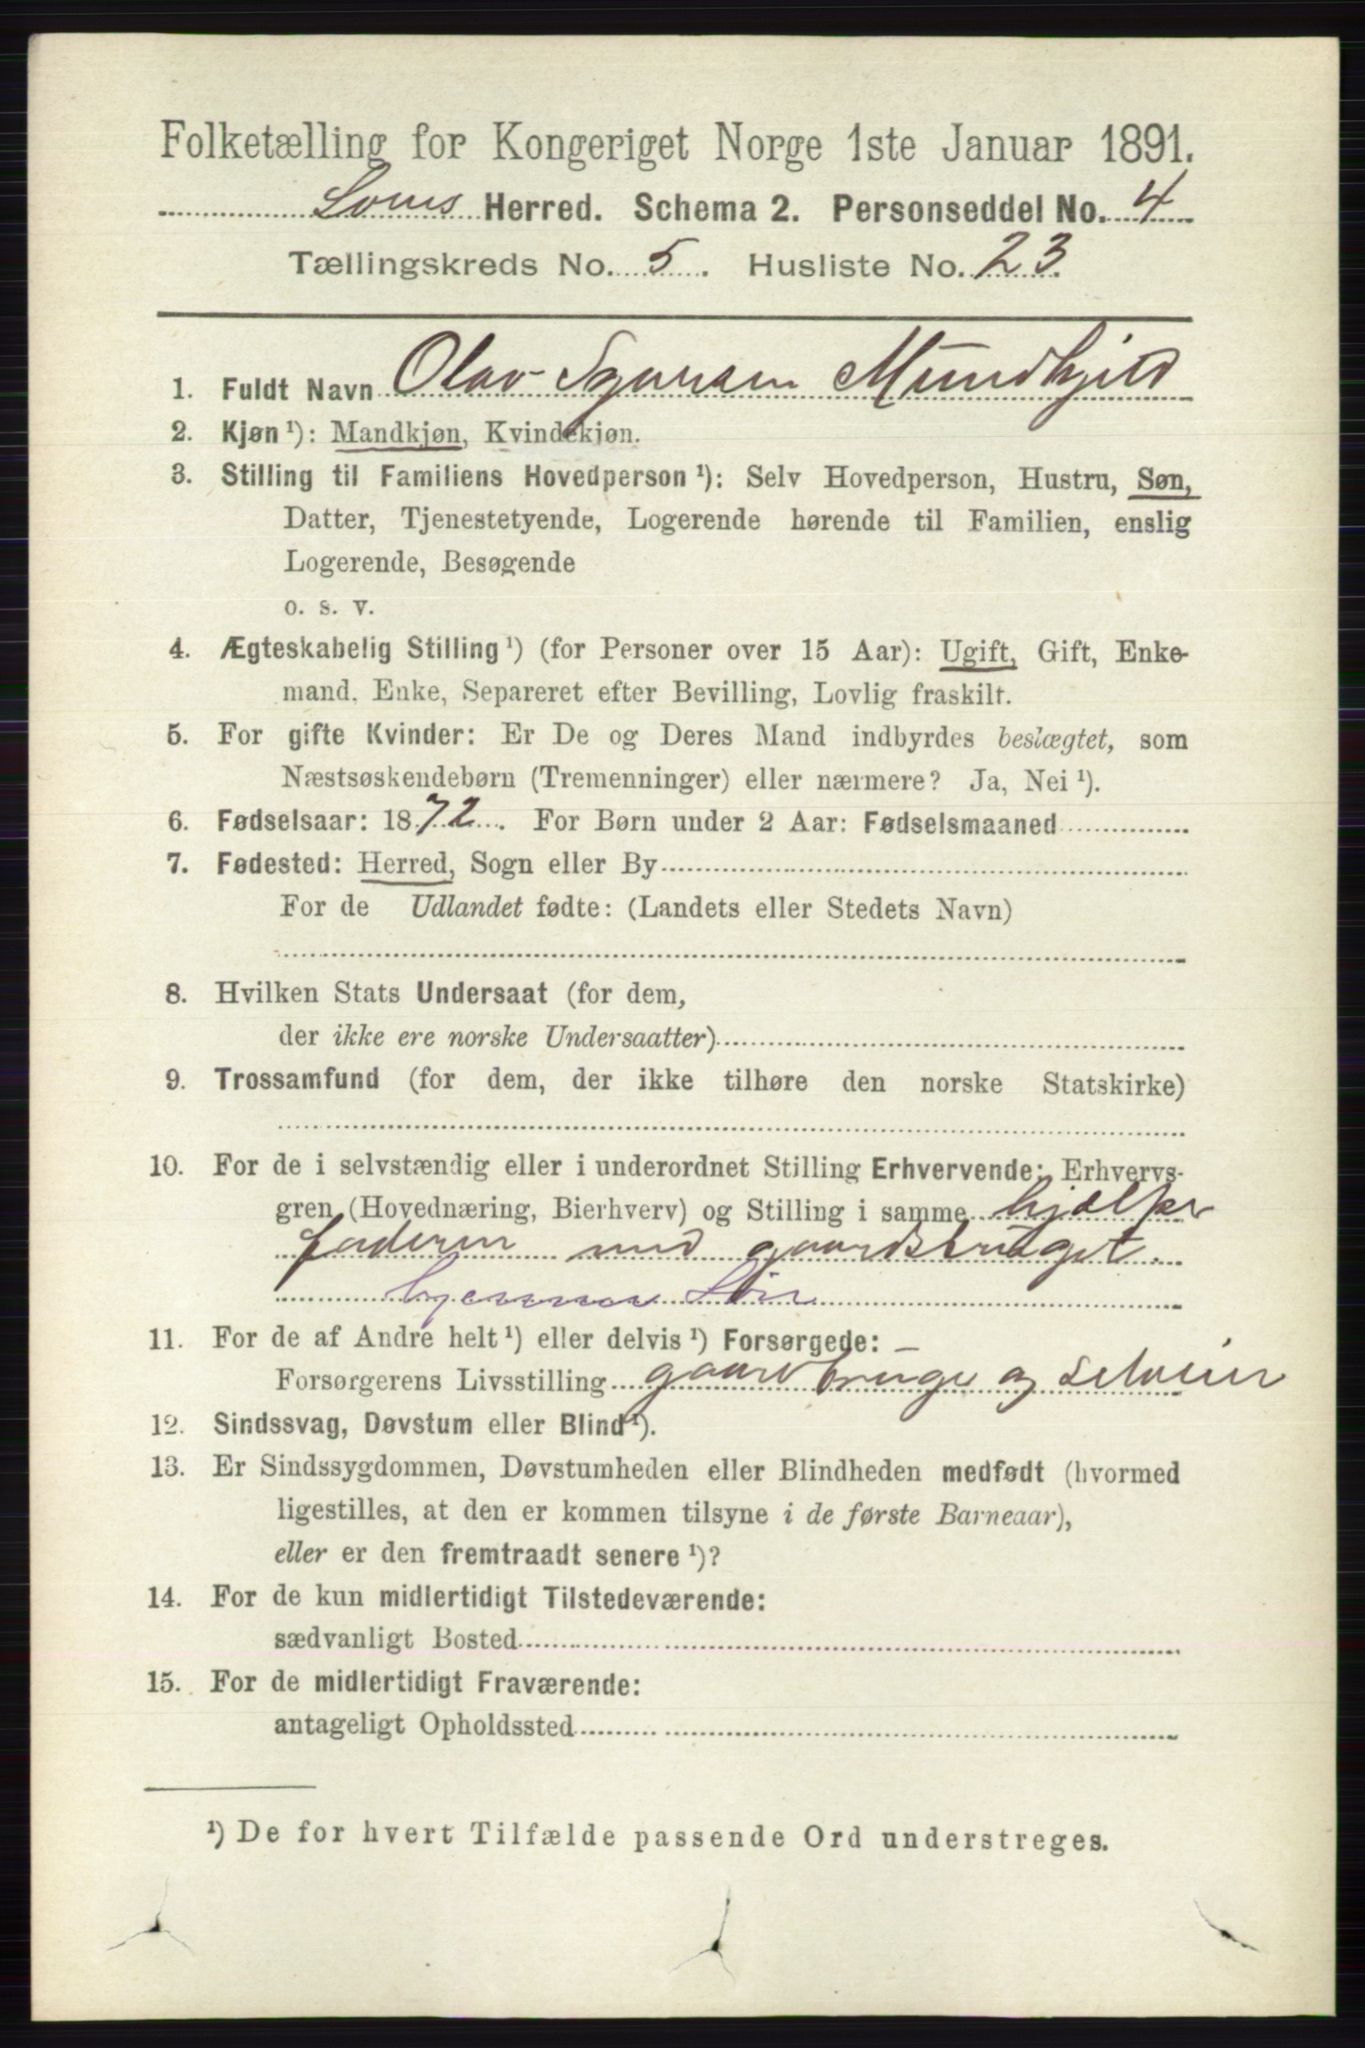 Folketælling for Kongeriget Norge 1ste Januar 1891.
Loms Herred. Schema 2. Personseddel No. 4
Tællingskreds No. 5. Husliste No. 23.
1. Fuldt Navn Olav Syversen Mundhjeld
2. Kjøn ¹): Mandkjøn, Kvindekjøn.
3. Stilling til Familiens Hovedperson ¹): Selv Hovedperson, Hustru, Søn,
Datter, Tjenestetyende, Logerende hørende til Familien, enslig
Logerende, Besøgende
o. s. v.
4. Ægteskabelig Stilling ¹) (for Personer over 15 Aar): Ugift, Gift, Enke-
mand, Enke, Separeret efter Bevilling, Lovlig fraskilt.
5. For gifte Kvinder: Er De og Deres Mand indbyrdes beslægtet, som
Næstsøskendebørn (Tremenninger) eller nærmere? Ja, Nei ¹).
6. Fødselsaar: 1872. For Børn under 2 Aar: Fødselsmaaned
7. Fødested: Herred, Sogn eller By
For de Udlandet fødte: (Landets eller Stedets Navn)
8. Hvilken Stats Undersaat (for dem,
der ikke ere norske Undersaatter)
9. Trossamfund (for dem, der ikke tilhøre den norske Statskirke)
10. For de i selvstændig eller i underordnet Stilling Erhvervende: Erhvervs-
gren (Hovednæring, Bierhverv) og Stilling i samme hjælper
faderen med gaardsbruget.
hjemmev. Søn
11. For de af Andre helt ¹) eller delvis ¹) Forsørgede: –
Forsørgerens Livsstilling gaardbruger og selveier
12. Sindssvag, Døvstum eller Blind ¹).
13. Er Sindssygdommen, Døvstumheden eller Blindheden medfødt (hvormed
ligestilles, at den er kommen tilsyne i de første Barneaar),
eller er den fremtraadt senere ¹)?
14. For de kun midlertidigt Tilstedeværende:
sædvanligt Bosted
15. For de midlertidigt Fraværende:
antageligt Opholdssted
¹) De for hvert Tilfælde passende Ord understreges.